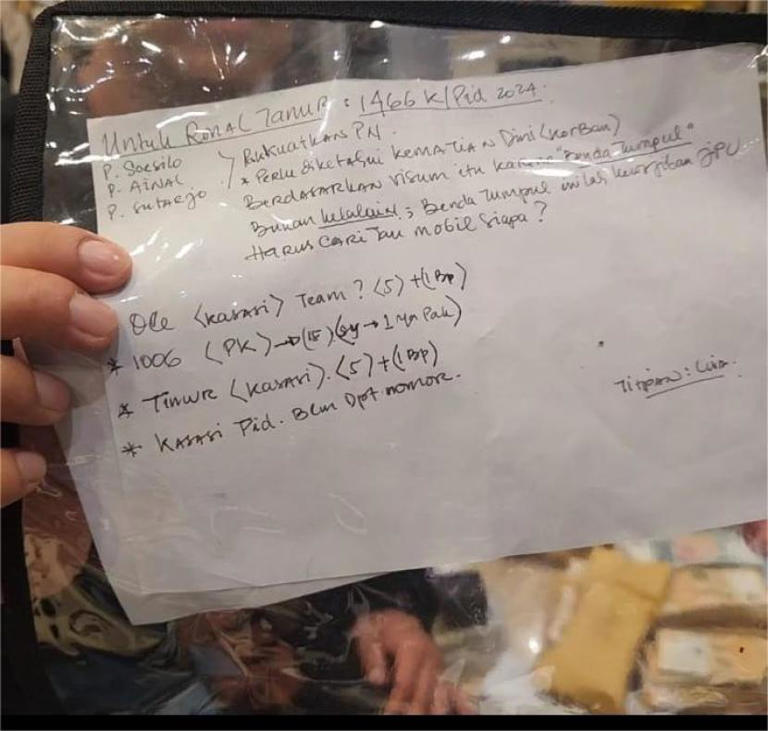 Untuk RONAL TANUR : 1466 K/Pid 2024.
P. Soesilo
P. AiNAL
P. Sutarjo
KukuatkAN PN.
* Perlu diketahui KEMATIAN Dini (korban)
BERDASARKAN visum itu karena "Benda Tumpul"
Bukan ; Benda Tumpul inilah kewajiban JPU
HARUS CARI Tau mobil siapa?
Ole (kasasi) Team? (5) + (1 Bp)
* 1006 (PK) → (15) → 1 Pak)
* Timur (kasasi). (5) + (1 Bp)
* KASASi Pid. Blm Dpt nomor.
Titipan : Lisa.